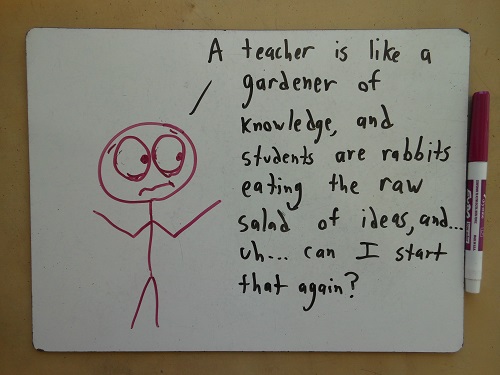 A teacher is like a
gardener of
knowledge, and
students are rabbits
eating the raw
salad of ideas, and...
uh... can I start
that again?